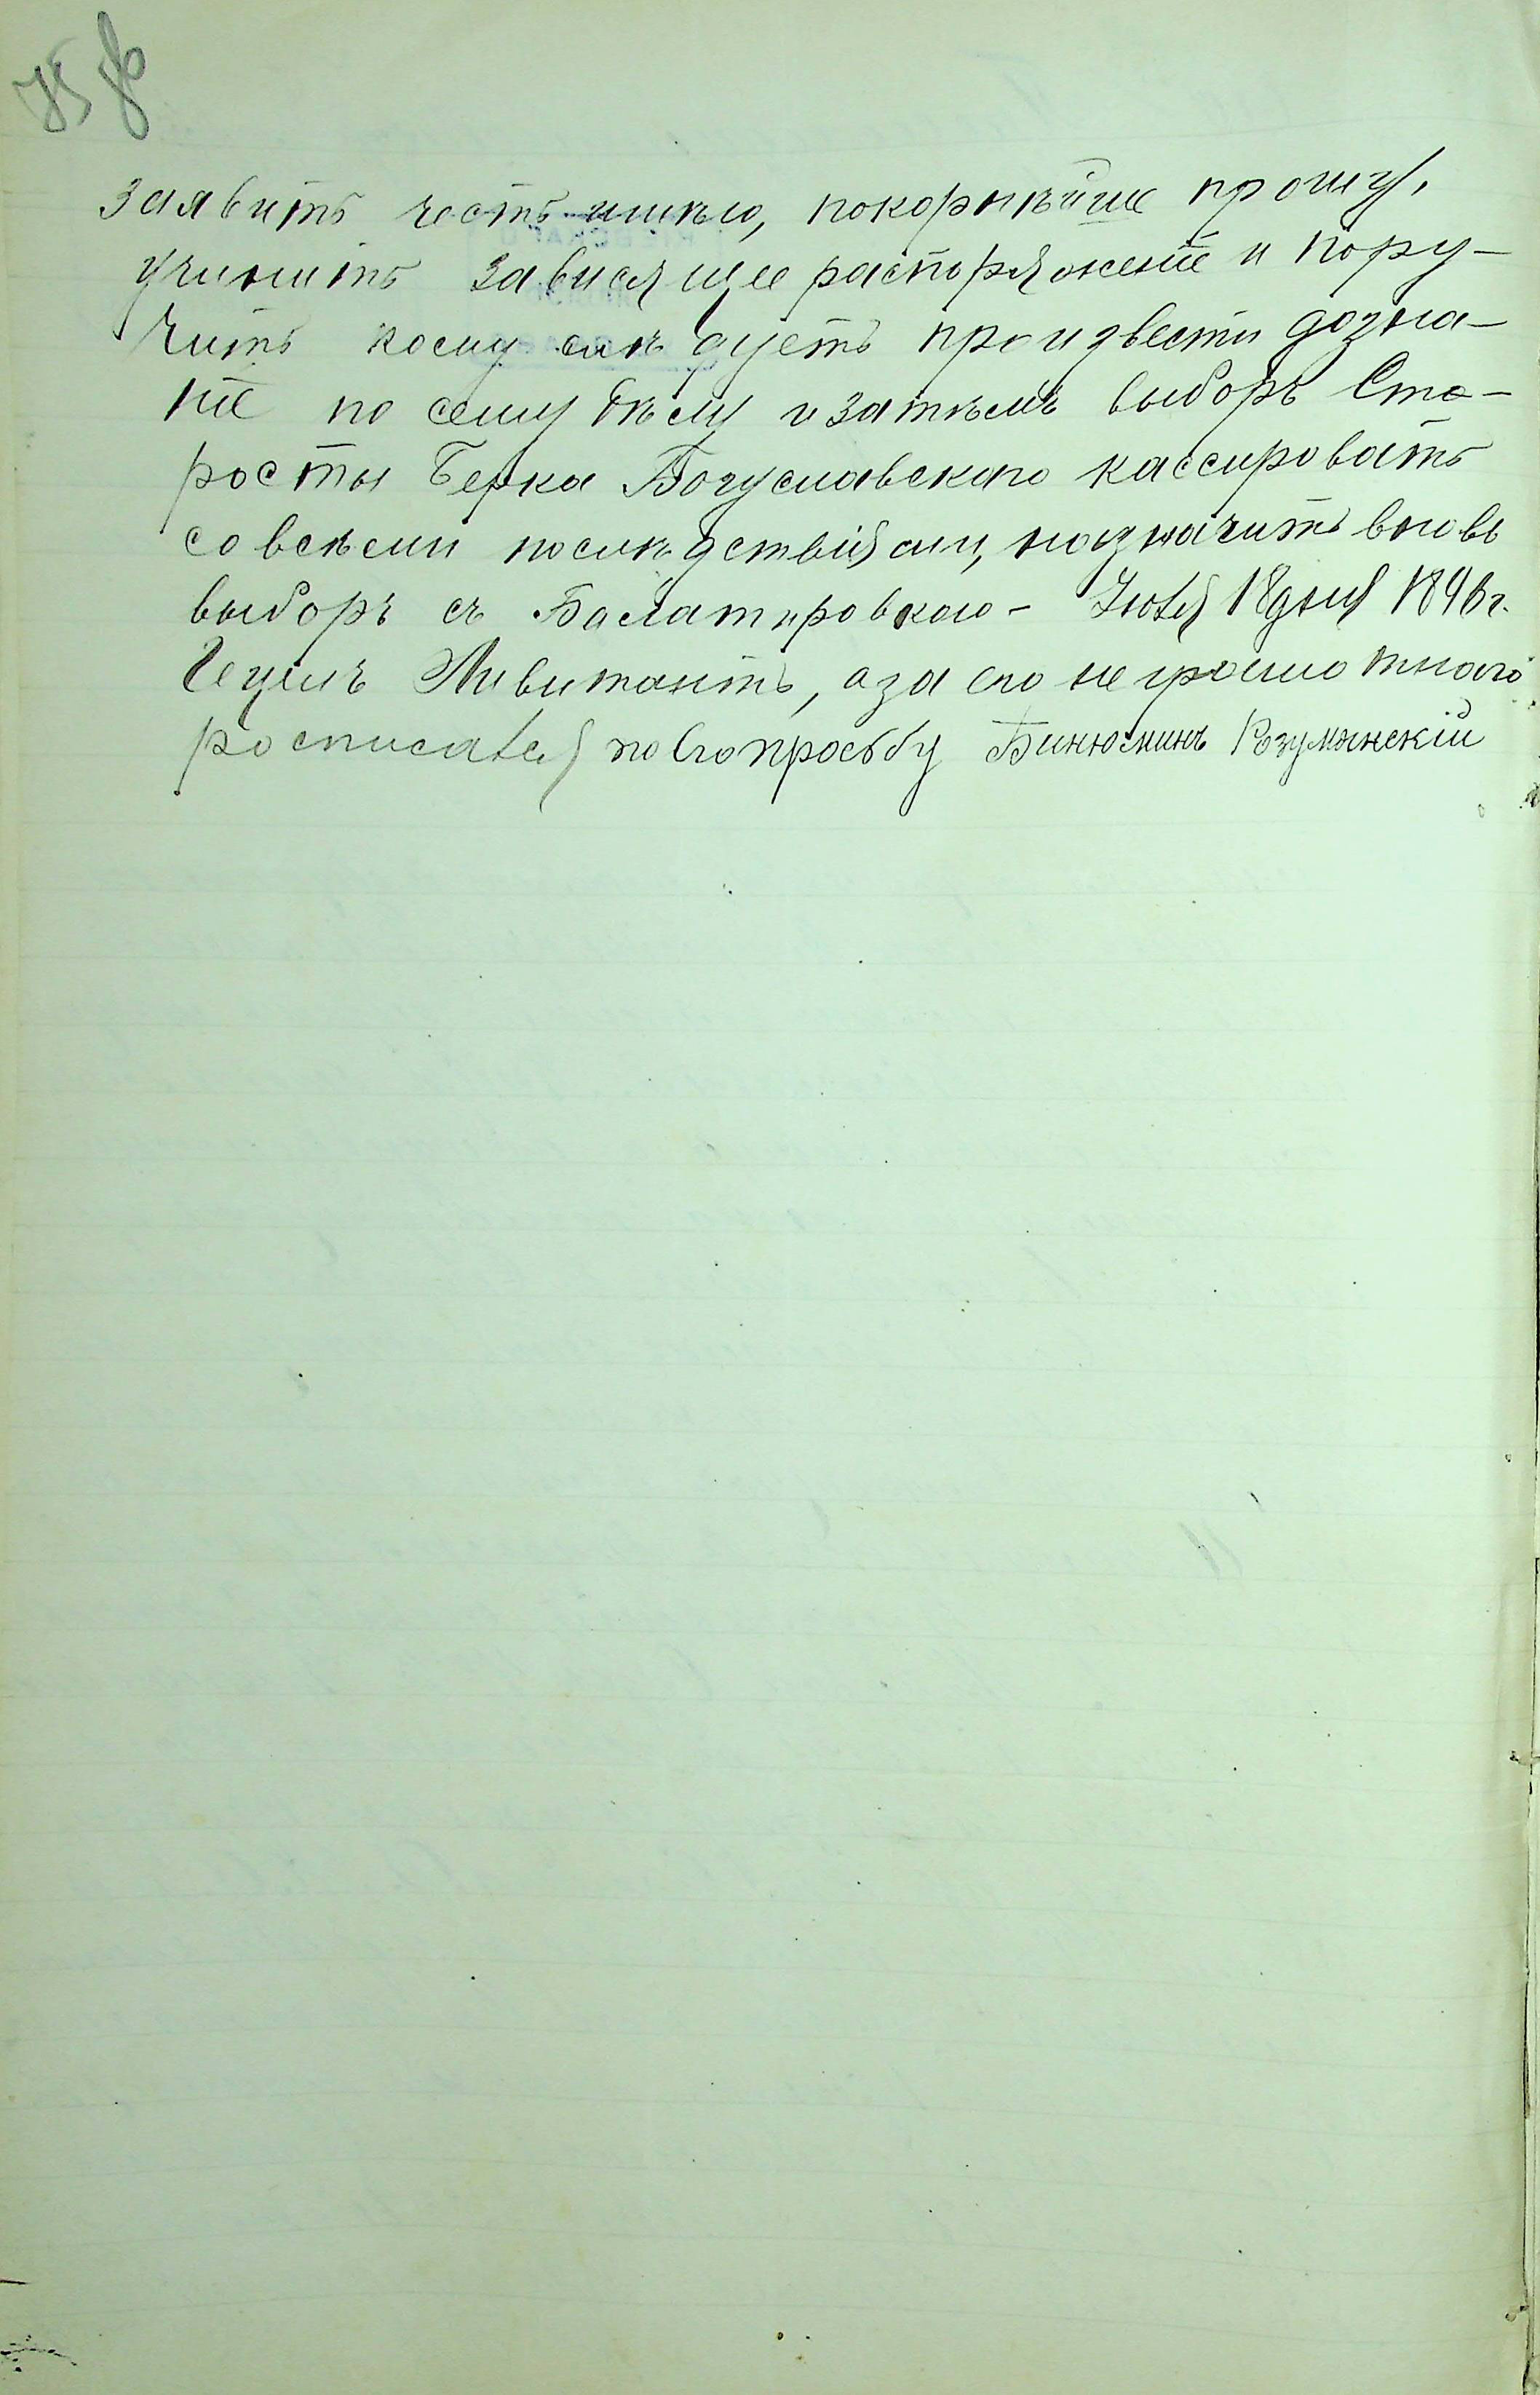 75 об
заявить честь имѣю, покорнѣйше прошу,
учинить зависящее распоряженіе и пору-
чить кому слѣдуетъ произвести дозна-
ніе по сему дѣлу и затѣмъ выборъ Ста-
росты Берка Богуславскаго кассировать
со всѣми послѣдствіями, назначить вновь
выборъ съ Балатировкою – Іюля 18 дня 1896 г.
Левитантъ, а за его неграмотнаго
росписался по его просьбу Бинюминъ Розумянскій